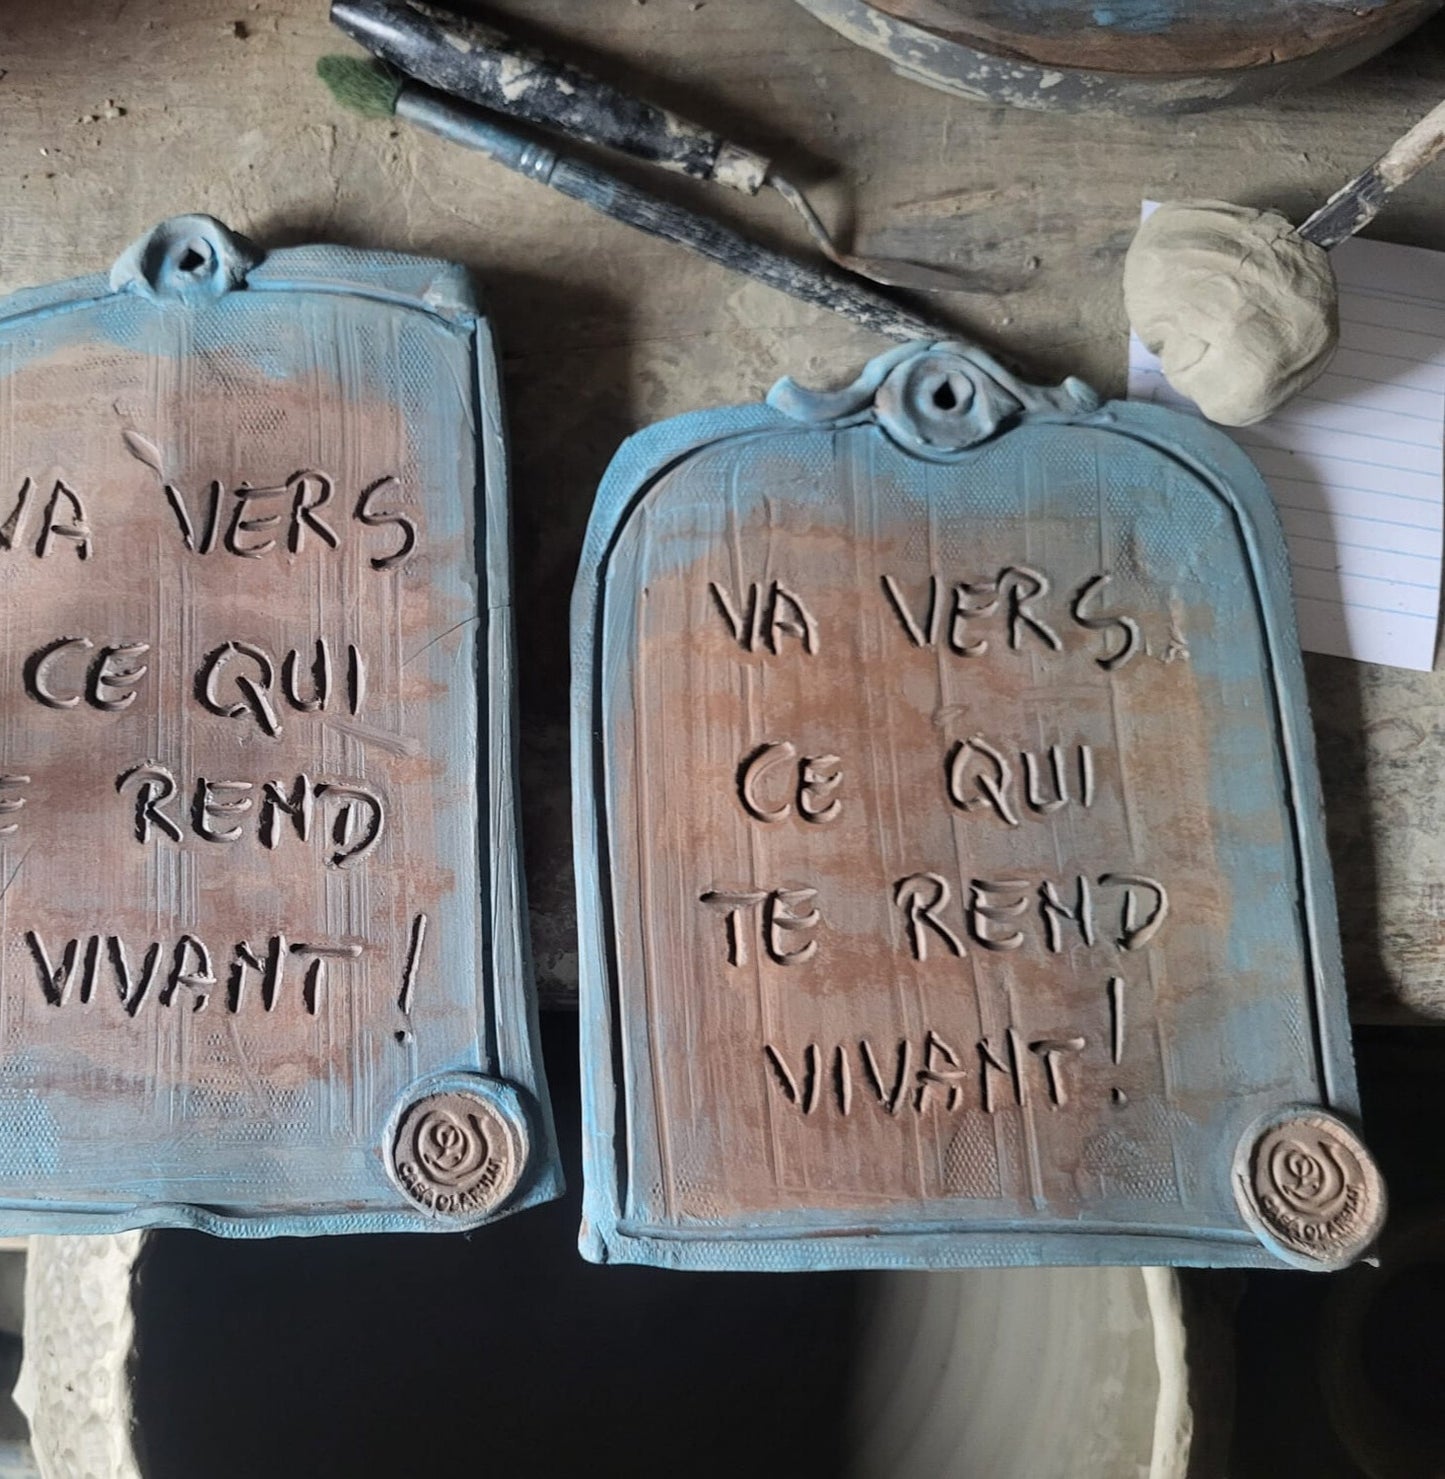 VA VERS
CE QUI
E REND
VIVANT!
VA VERS
CE QUI
TE REND
VIVANT!